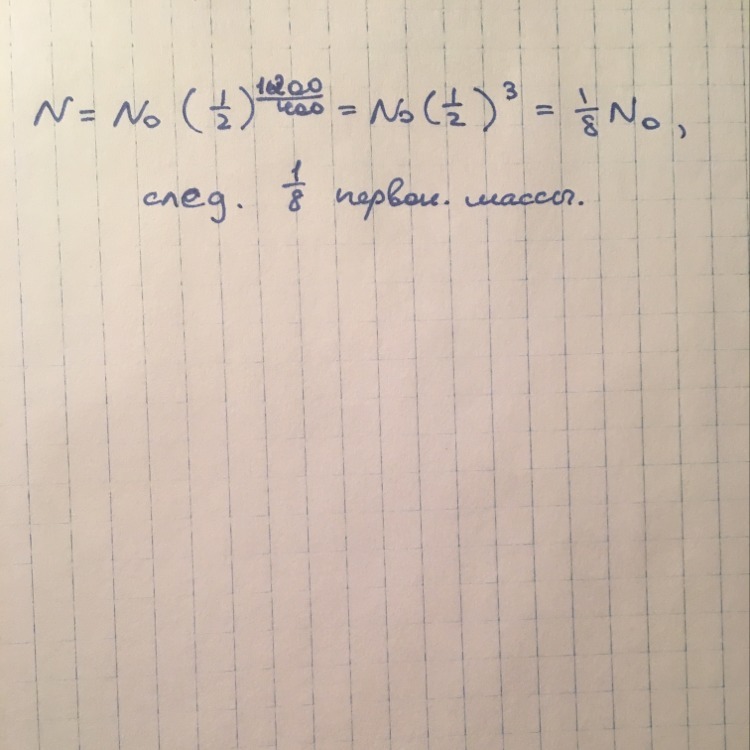 N = N₀ (1/2)^(1200/400) = N₀ (1/2)³ = 1/8 N₀,
след. 1/8 первон. массы.